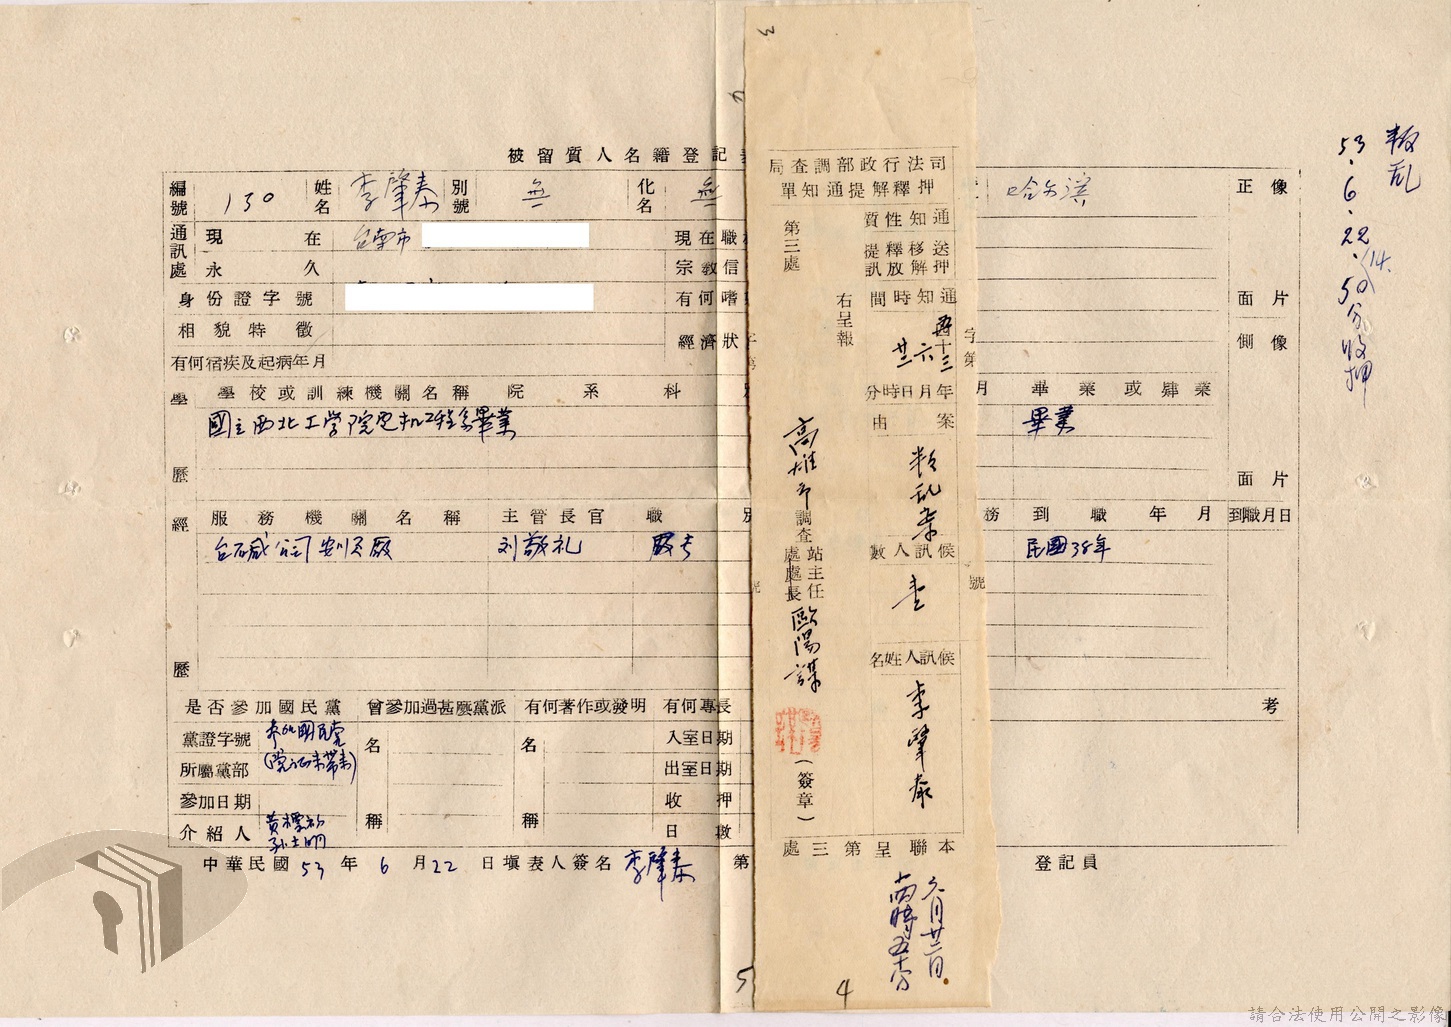 被留質人名籍登記
編號 130 姓名 李肇泰 別號 無 化名 無
哈尔濱
正像
通訊處 現在 台南市 現在職
永久 宗教信
身份證字號 有何嗜
面片
相貌特徵 經濟狀
側像
有何宿疾及起病年月
學歷 學校或訓練機關名稱 院系科別
月 畢業或肄業
國立西北工学院电机工程系畢業
畢業
面片
經歷 服務機關名稱 主管長官 職別
務 到職年月 到職月日
台碱公司安順廠 刘敬礼
民國38年
是否參加國民黨 曾參加過甚麼黨派 有何著作或發明 有何專長
考
黨證字號 参加國民党
所屬黨部 (党証未帶来)
參加日期
介紹人
名稱
名稱
入室日期
出室日期
收押日數
中華民國53年6月22日填表人簽名 李肇泰
第
登記員
叛乱
53.6.22.14.50分收押
3
司法行政部調查局
押釋解提通知單
通知性質
送押 移解 釋放 提訊
通知時間
五十三 六 廿二
年月日時分
案由
叛乱案
候訊人數
壹
候訊人姓名
李肇泰
第三處
右呈報
高雄市調查站主任
處處長
歐陽謀
(簽章)
字第
號
本聯呈第三處
六月廿二日
十四時五十分
5
4
請合法使用公開之影像